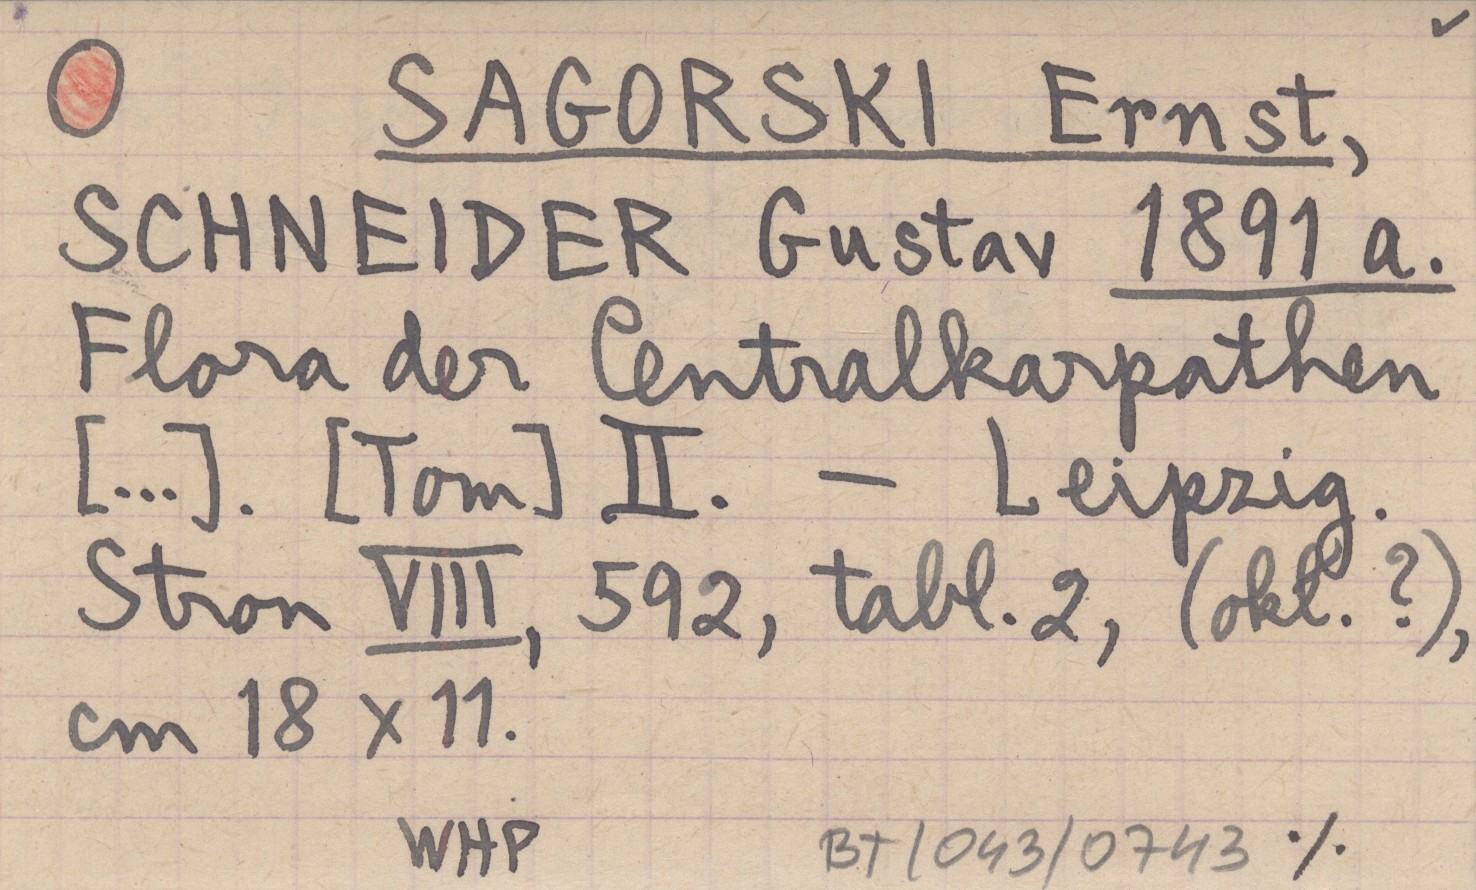 SAGORSKI Ernst,
SCHNEIDER Gustav 1891 a.
Flora der Centralkarpathen
[...]. [Tom] II. – Leipzig.
Stron VIII, 592, tabl. 2, (okł. ?),
cm 18 x 11.
WHP BT/043/0743 ./.